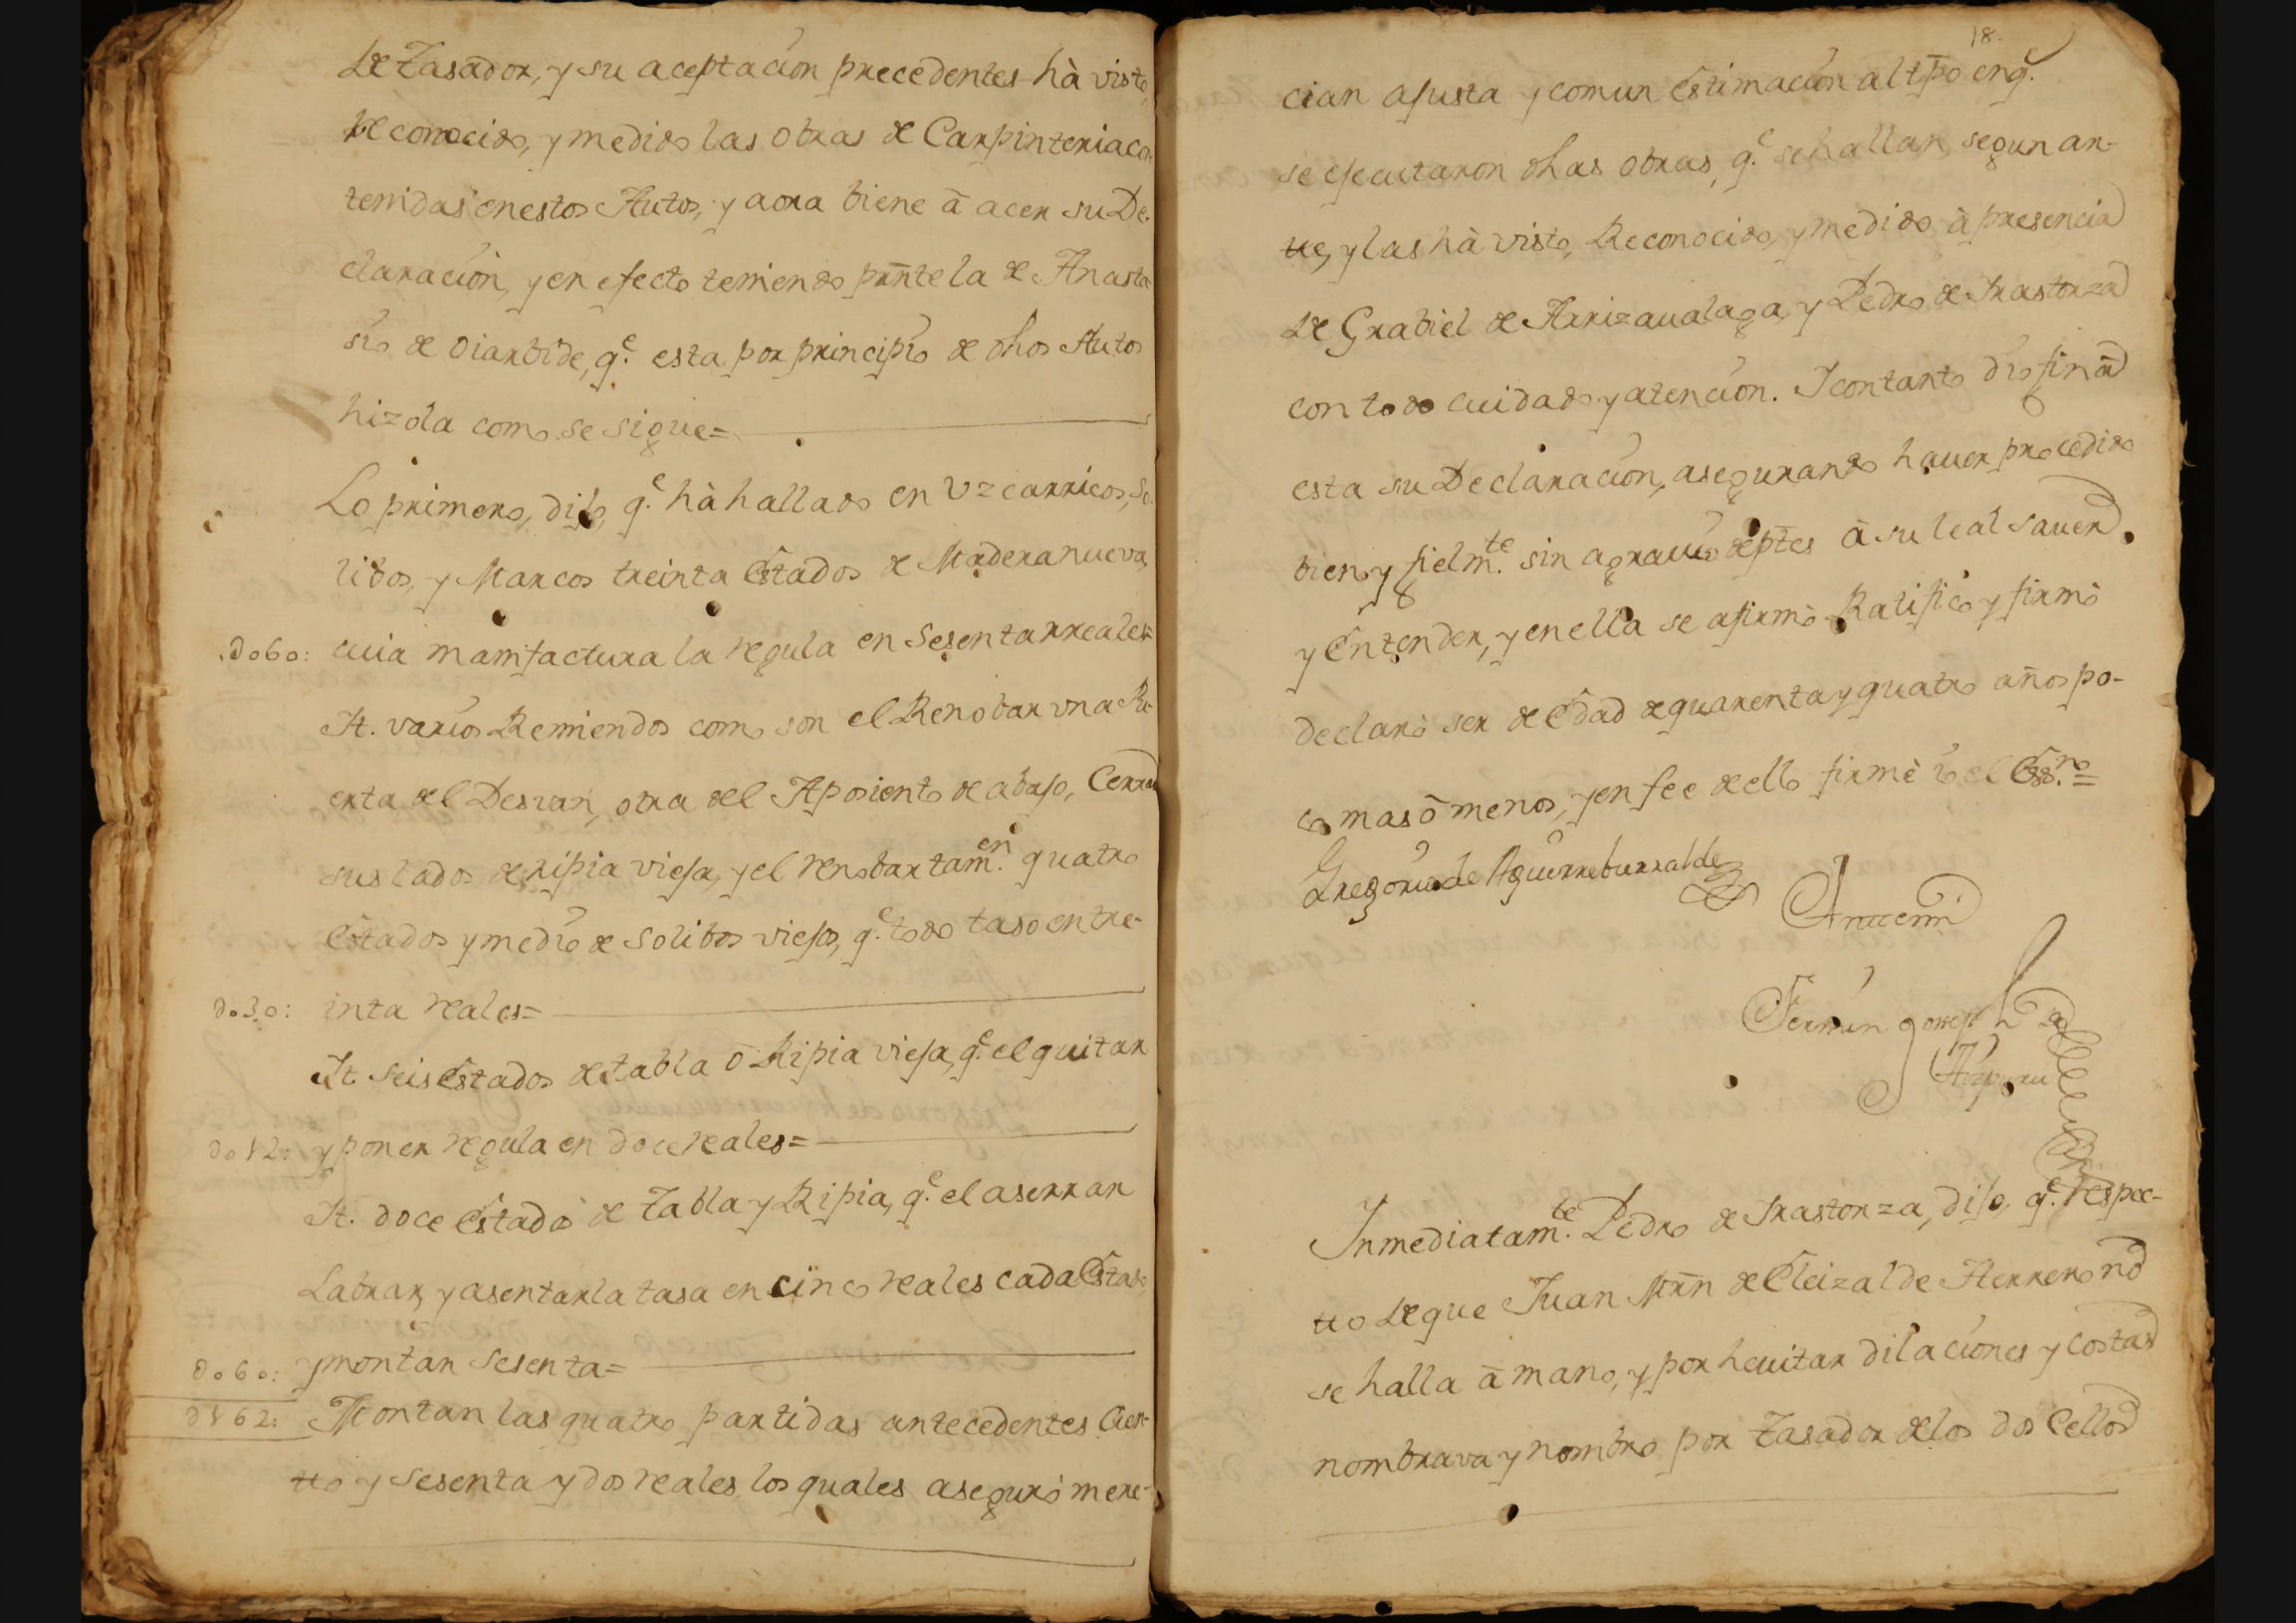 de Tasador, y su aceptacion precedentes hà visto,
Reconocido, y medido las obras de Carpinteria con
tenidas en estos Autos, y aora biene à acer su De-
claracion, y en efecto teniendo prẽnte la de Anasta
sio de Oiarbide, q.e esta por principio de dhos Autos
hizola como se sigue=
Lo primero, dijo, q.e hà hallado en Uzcarricos, So-
libos, y Marcos treinta Estados de Madera nueva,
.do60: cuia manifactura la regula en Sesenta rreales=
It. varios Remiendos como son el Renobar una Pu
erta del Desvan, otra del Aposiento de abajo, Cerrar
sus lados de ripia vieja, y el renobar tam.en quatro
Estados y medio de Solibos viejos, q.e todo taso en tre-
do30: inta reales=
It. seis Estados de tabla ò Ripia vieja, q.e el quitar
do12: y poner regula en doce reales=
It. doce Estados de Tabla y Ripia, q.e el aserrar
Labrar, y asentarla tasa en cinco reales cada Estado,
do60: y montan sesenta=
d162: Montan las quatro partidas antecedentes Cien-
tto y Sesenta y dos reales, los quales aseguró mere-
18.
cian ajusta y comun Estimacion al tp̃o en q.e
se ejecutaron dhas obras, q.e se hallan segun an-
tte, y las hà visto, Reconocido, y medido à presencia
de Grabiel de Arrizavalaga, y Pedro de Irastorza
con todo cuidado y atencion. I contanto dio fin à
esta su Declaracion, asegurando haver procedido
bien y fielm.te sin agravio de ptẽs à su leal saver
y Entender, y en ella se afirmò Ratificò y firmò
declarò ser de Edad de quarenta y quatro años po-
co mas ò menos, y en fee de ello firmè io el Ess.no=
Gregorio de Aguirreburralde
Antemi
Fermin Joseph de
Aizpuru
Inmediatam.te Pedro de Irastorza, dijo, q.e respec-
tto de que Juan Mrñ de Eleizalde Herrero no
se halla à mano, y por hevitar dilaciones y costas
nombrava y nombrò por Tasador de los dos Cellos